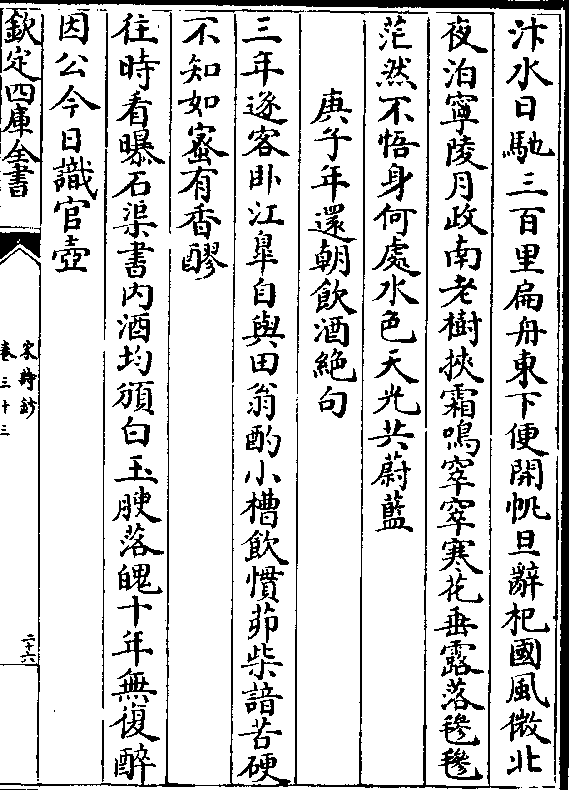 汴水日馳三百里扁舟東下便開帆旦辭杞國風微北
夜泊寧陵月政南老樹挾霜鳴窣窣寒花垂露落毿毿
茫然不悟身何處水色天光共蔚藍
庚子年還朝飲酒絶句
三年逐客卧江臯自與田翁酌小槽飲慣茆柴諳苦硬
不知如蜜有香醪
往時看曝石渠書内酒均頒白玉腴落魄十年無復醉
因公今日識官壺
欽定四庫全書
宋詩鈔
卷三十三
二六